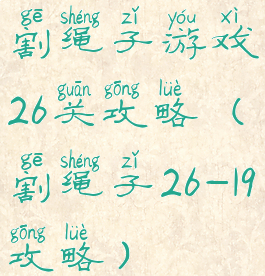 gē shéng zǐ yóu xì
割绳子游戏
guān gōng lüè
26关攻略（
gē shéng zǐ
割绳子26-19
gōng lüè
攻略）